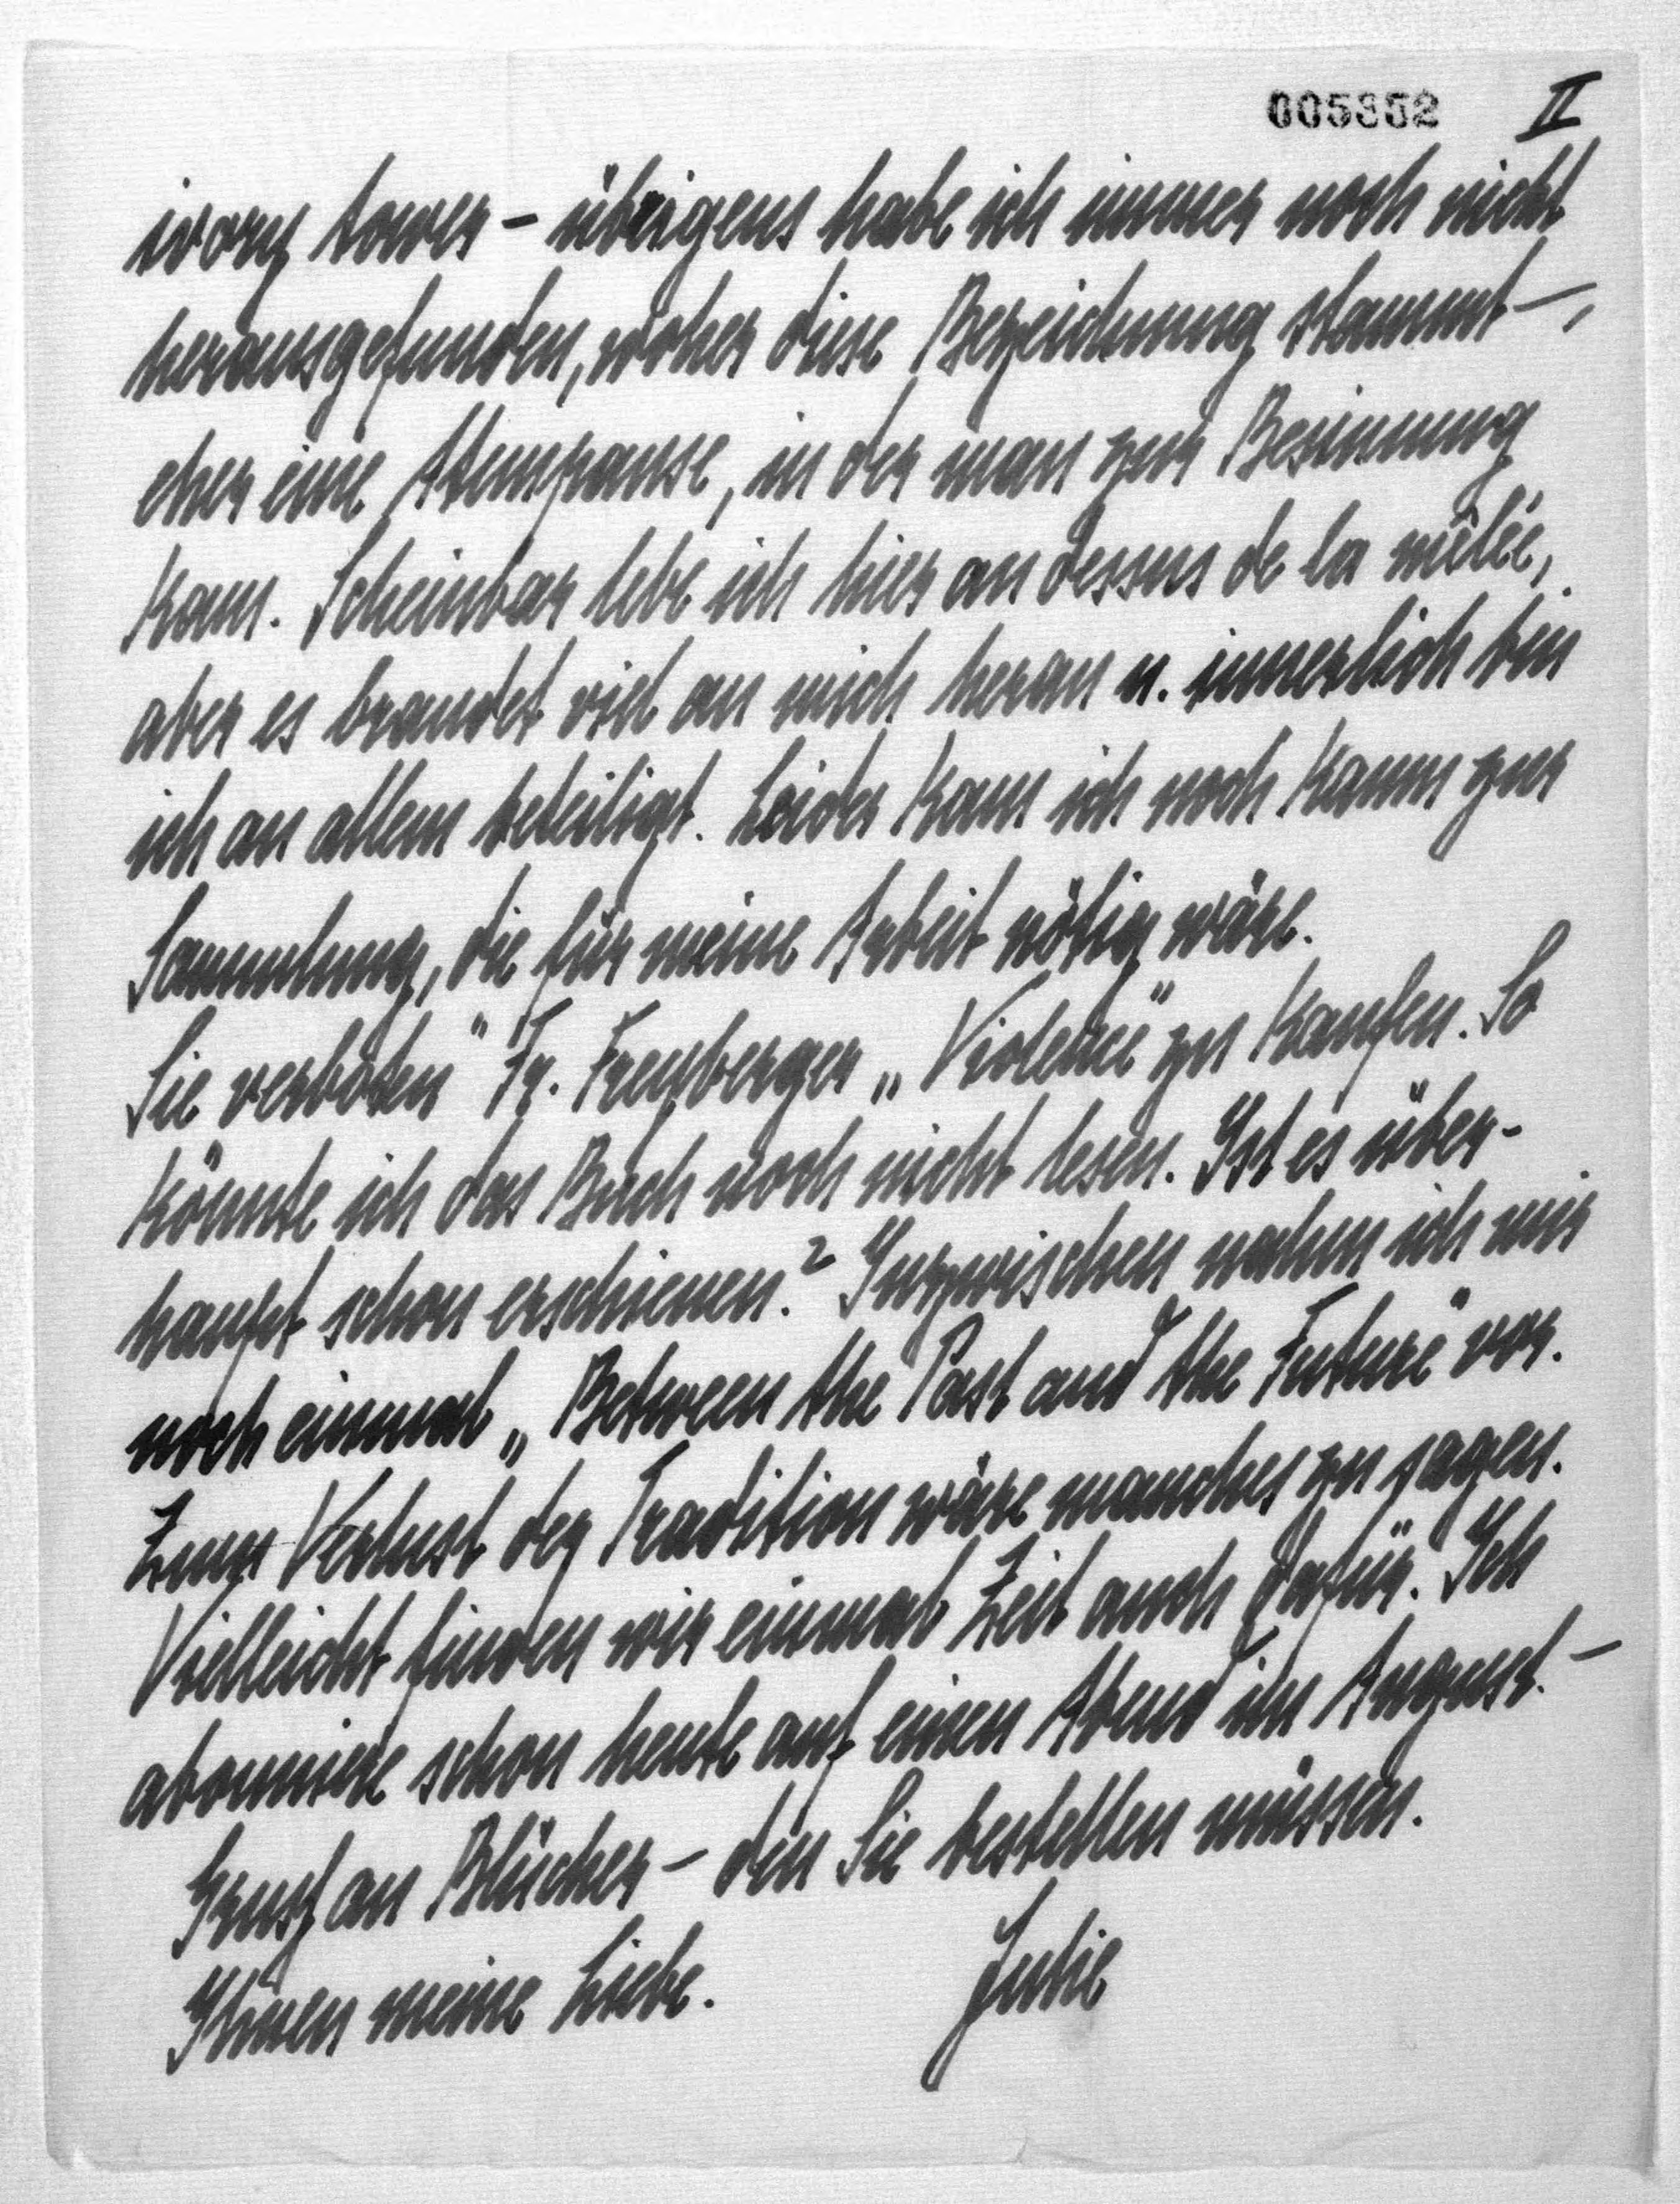 005352 II
ivory tower – übrigens habe ich immer noch nicht
herausgefunden, woher diese Bezeichnung stammt –,
eher eine Atempause, in der man zur Besinnung
kam. Scheinbar lebe ich hier au dessus de la mêlée,
aber es brandet viel an mich heran u. innerlich bin
ich an allem beteiligt. Leider kam ich noch kaum zur
Sammlung, die für meine Arbeit nötig wäre.
Sie verboten Fr. Freyberger „Violence" zu kaufen. So
könnte ich das Buch noch nicht lesen. Ist es über-
haupt schon erschienen? Inzwischen nahm ich mir
noch einmal „Between the Past and the Future" vor.
Zum Verlust der Tradition wäre manches zu sagen.
Vielleicht finden wir einmal Zeit auch dafür. Ich
abonniere schon heute auf einen Abend im August. –
Gruß an Blücher – den Sie bestellen müssen.
Ihnen meine Liebe. Julie